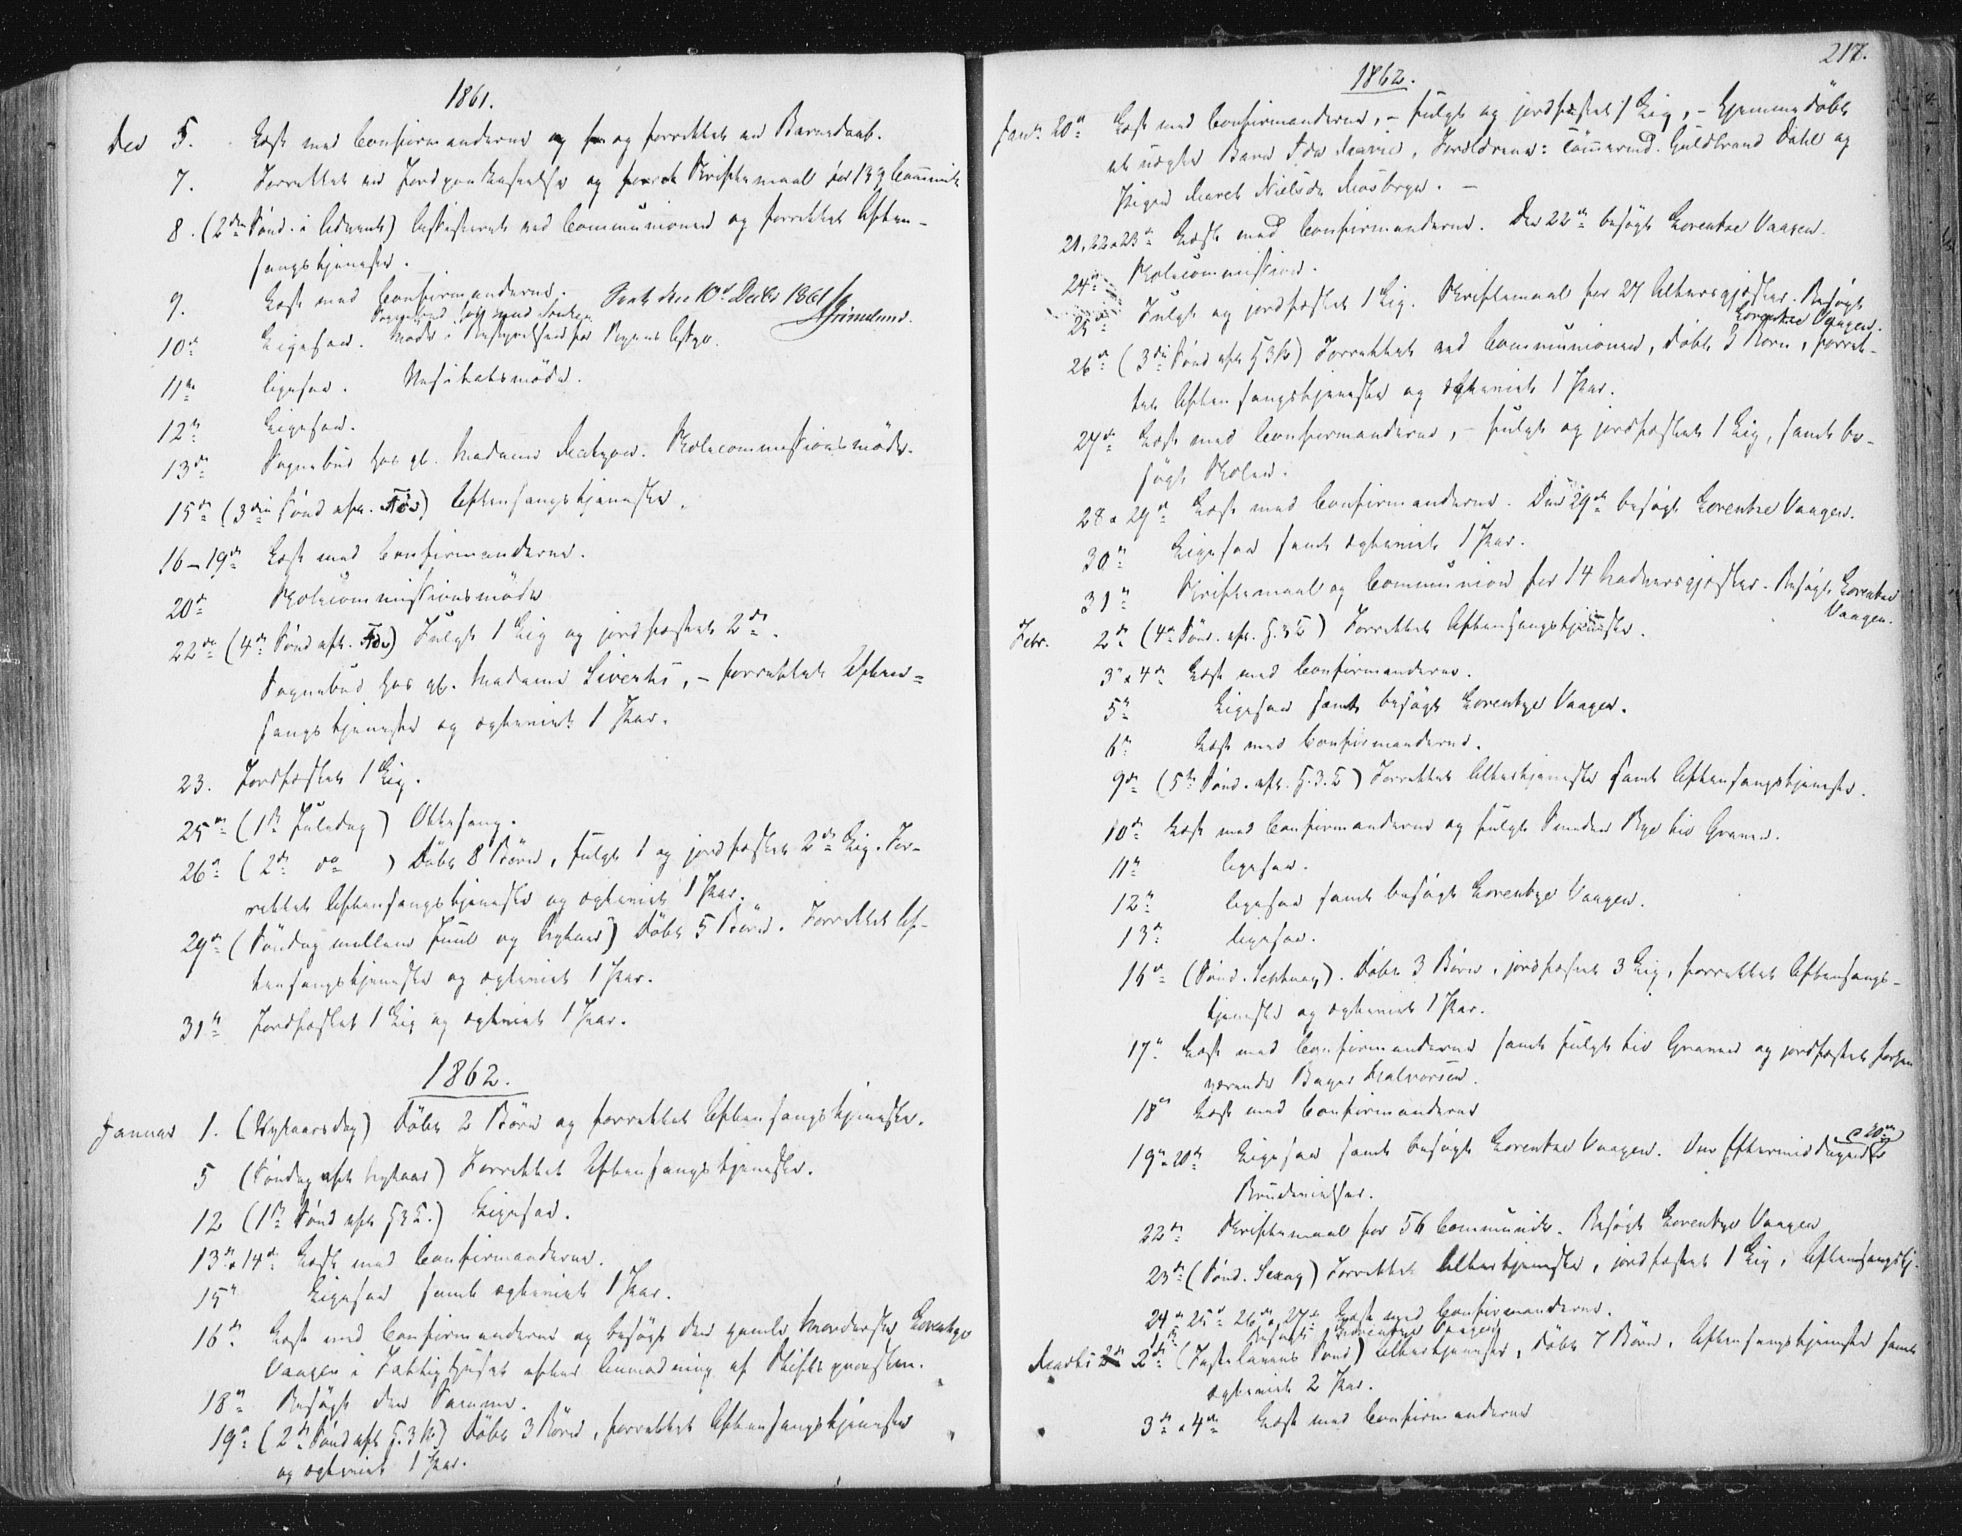 1861.
Dec 5. Læst med Confirmanderne og og forrettet en Barnedaab.
7. Forrettet en Jordpaakastelse og Skriftemaal for 139 Communic
8. (2den Sönd. i Advent) Assisteret ved Communionen og forrettet Aften-
sangstjeneste.
9. Læst med Confirmanderne. Seet den 10de Decbr 1861 Grimelund.
10de Ligesaa. Möde i Bestyrelsen for Byens Asyl.
11te ligesaa. Möde.
12te Ligesaa.
13de Sognebud hos gl. Madame. Skolecommissionsmöde.
15de (3die Sönd i Adv) Aftensangstjeneste.
16-19de Læst med Confirmanderne.
20de Skolecommissionsmöde
22de (4de Sönd i Adv) Fulgt 1 Lig og jordfæstet 2de.
Sognebud hos gl. Madame Sivertz, - forrettet Aften-
sangstjeneste og ægteviet 1 Par.
23. Jordfæstet 1 Lig.
25de (1ste Juledag) Ottesang.
26de (2den do ) Döbt 8 Börn, fulgt 1 og jordfæstet 2de Lig. For-
rettet Aftensangstjeneste og ægteviet 1 Par.
29de (Söndag mellem Juul og Nytaar) Döbt 5 Börn. Forrettet Af-
tensangstjeneste og ægteviet 1 Par.
31te Jordfæstet 1 Lig og ægteviet 1 Par.
1862.
Januar 1. (Nytaarsdag) Döbt 2 Börn og forrettet Aftensangstjeneste.
5 (Söndag eft Nytaar) Forrettet Aftensangstjeneste.
12 (1ste Sönd eft H3K.) Ligesaa.
13de & 14de Læst med Confirmanderne.
15de Ligesaa samt ægteviet 1 Par.
16de Læst med Confirmanderne og besögt den gamle Morderske Lorentze
Vaagen i Fattighuset efter Anmodning af Stiftsprovsten.
18de Besögt den Samme.
19de (2den Sönd eft H.3K.) Döbt 3 Börn, forrettet Aftensangstjeneste
og ægteviet 1 Par.
217.
1862.
Janr. 20de Læst med Confirmanderne, - fulgt og jordfæstet 1 Lig, - Hjemmedöbt
et uægte Barn Ida Marie, Forældrene: Tömmermd. Guldbrand Dahl og
Pigen Maret Nielsdr Mosbryn. -
21, 22 & 23de Læst med Confirmanderne. Den 22de besögt Lorentze Vaagen.
24de Skolecommission.
25de Fulgt og jordfæstet 1 Lig. Skriftemaal for 27 Altersgjæster. Besögt
Lorentze Vaagen.
26de (3die Sönd eft H3K) Forrettet ved Communionen, döbt 3 Börn, forret-
tet Aftensangstjeneste og ægteviet 1 Par.
27de Læst med Confirmanderne, - fulgt og jordfæstet 1 Lig, samt be-
sögt Skolen.
28 & 29de Læst med Confirmanderne. Den 29de besögt Lorentze Vaagen.
30te Ligesaa samt ægteviet 1 Par.
31te Skriftemaal og Communion for 14 Nadversgjæster. Besögt Lorentze
Vaagen.
Febr. 2den (4de Sönd. eft. H.3K) Forrettet Aftensangstjeneste.
3die & 4de Læst med Confirmanderne.
5te Ligesaa samt besögt Lorentze Vaagen.
6te Læst med Confirmanderne.
9de (5te Sönd. eft. H.3.K) Forrettet Altertjeneste samt Aftensangstjeneste.
10de Læst med Confirmanderne og fulgt Rye til Graven.
11te ligesaa.
12te ligesaa samt besögt Lorentze Vaagen.
13de ligesaa.
16de (Sönd. Septuag). Döbt 3 Börn, jordfæstet 3 Lig, forrettet Aftensangs-
tjeneste og ægteviet 1 Par.
17de Læst med Confirmanderne samt fulgt til Graven og jordfæstet forhen-
værende Bager Halvorsen.
18de Læst med Confirmanderne
19de & 20de Ligesaa samt besögt Lorentze Vaagen. Om Eftermiddagen (d 20de)
Brudevielse.
22de Skriftemaal for 56 Communic. Besögt Lorentze Vaagen
23de (Sönd. Sexag) Forrettet Altertjeneste, jordfæstet 1 Lig, Aftensangstj.
24de 25de 26de & 27de Læst med Confirmanderne.
Besögt Lorentze Vaagen
Marts 2den (Fastelavens Sönd) Altertjeneste, döbt 7 Börn, Aftensangstjeneste samt
ægteviet 2 Par.
3die & 4de Læst med Confirmanderne